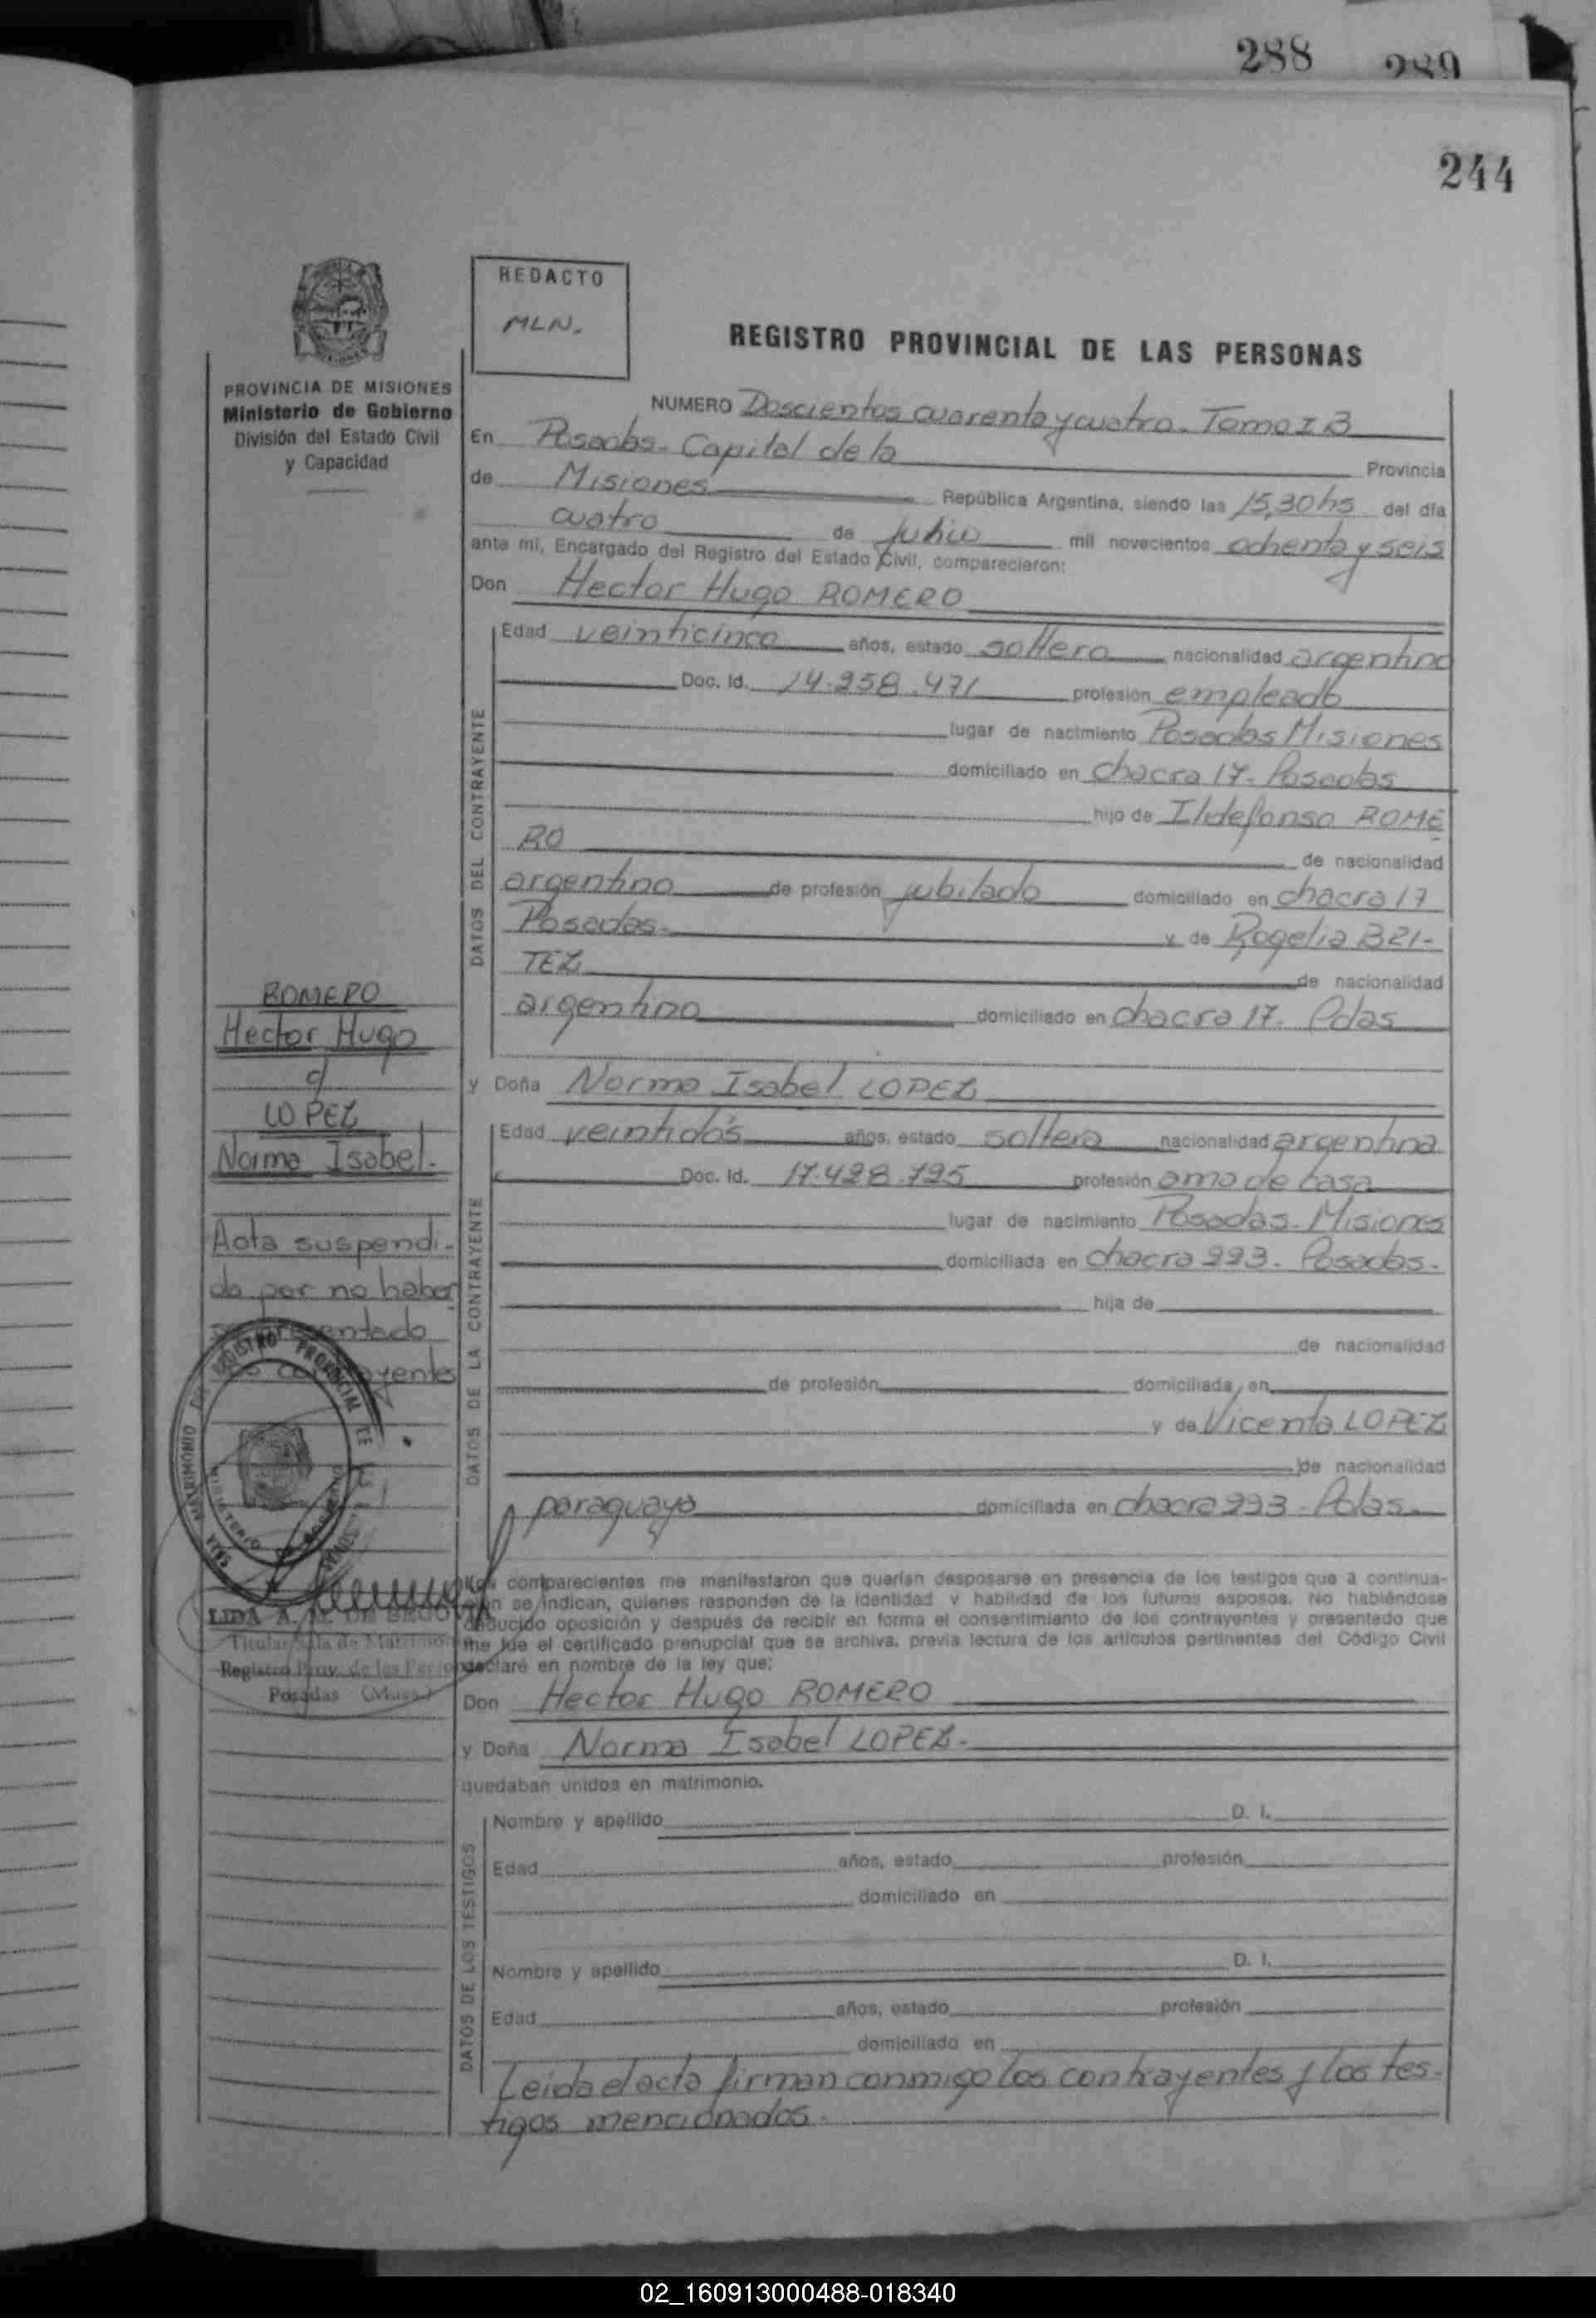 288 289
244
REDACTO
MLN.
REGISTRO PROVINCIAL DE LAS PERSONAS
PROVINCIA DE MISIONES
Ministerio de Gobierno
División del Estado Civil
y Capacidad
NUMERO Doscientos cuarenta y cuatro. Tomo I B
En Posadas - Capital de la Provincia
de Misiones República Argentina, siendo las 15,30 hs del día
cuatro de Julio mil novecientos ochenta y seis
ante mí, Encargado del Registro del Estado Civil, comparecieron:
Don Hector Hugo ROMERO
DATOS DEL CONTRAYENTE
Edad veinticinco años, estado soltero nacionalidad argentino
Doc. Id. 14.258.471 profesión empleado
lugar de nacimiento Posadas Misiones
domiciliado en chacra 17 - Posadas
hijo de Ildefonso ROME
RO de nacionalidad
argentino de profesión jubilado domiciliado en chacra 17
Posadas. y de Rogelia
TEZ de nacionalidad
argentina domiciliado en chacra 17. Pdas
ROMERO
Hector Hugo
c/
LOPEZ
Norma Isabel.
y Doña Norma Isabel LOPEZ
DATOS DE LA CONTRAYENTE
Edad veintidós años, estado soltera nacionalidad argentina
Doc. Id. 17.428.725 profesión ama de casa
lugar de nacimiento Posadas - Misiones
domiciliada en chacra 223. Posadas.
hija de
de nacionalidad
de profesión domiciliada en
y de Vicenta LOPEZ
de nacionalidad
paraguaya domiciliada en chacra 223 - Pdas.
Acta suspendi-
da por no haber
se presentado
los contrayentes
REGISTRO PROVINCIAL DE LAS PERSONAS
SALA MATRIMONIO
MINISTERIO DE GOBIERNO
LIDA A. DE SEGOVIA
Titular Sala de Matrimonio
Registro Prov. de las Personas
Posadas (Mnes.)
Los comparecientes me manifestaron que querían desposarse en presencia de los testigos que a continua-
ción se indican, quienes responden de la identidad y habilidad de los futuros esposos. No habiéndose
deducido oposición y después de recibir en forma el consentimiento de los contrayentes y presentado que
me fue el certificado prenupcial que se archiva, previa lectura de los artículos pertinentes del Código Civil
declaré en nombre de la ley que:
Don Hector Hugo ROMERO
y Doña Norma Isabel LOPEZ.
quedaban unidos en matrimonio.
DATOS DE LOS TESTIGOS
Nombre y apellido D. I.
Edad años, estado profesión
domiciliado en
Nombre y apellido D. I.
Edad años, estado profesión
domiciliado en
Leida el acta firman conmigo los contrayentes y los tes-
tigos mencionados.
02_160913000488-018340